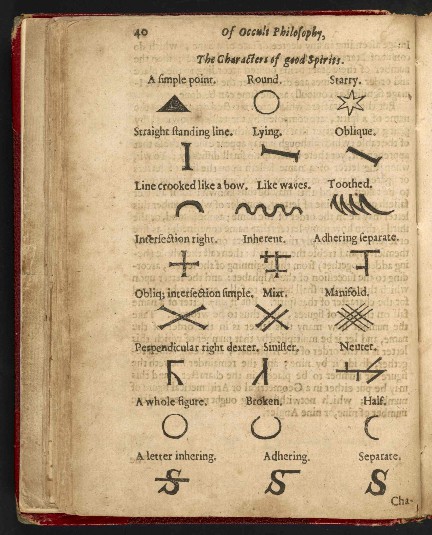 40 Of Occult Philoſophy,
The Characters of good Spirits.
A ſimple point. Round. Starry.
Straight ſtanding line. Lying. Oblique.
Line crooked like a bow. Like waves. Toothed.
Interſection right. Inherent. Adhering ſeparate.
Obliq; interſection ſimple. Mixt. Manifold.
Perpendicular right dexter. Siniſter. Neuter.
A whole figure. Broken. Half.
A letter inhering. Adhering. Separate.
Cha-